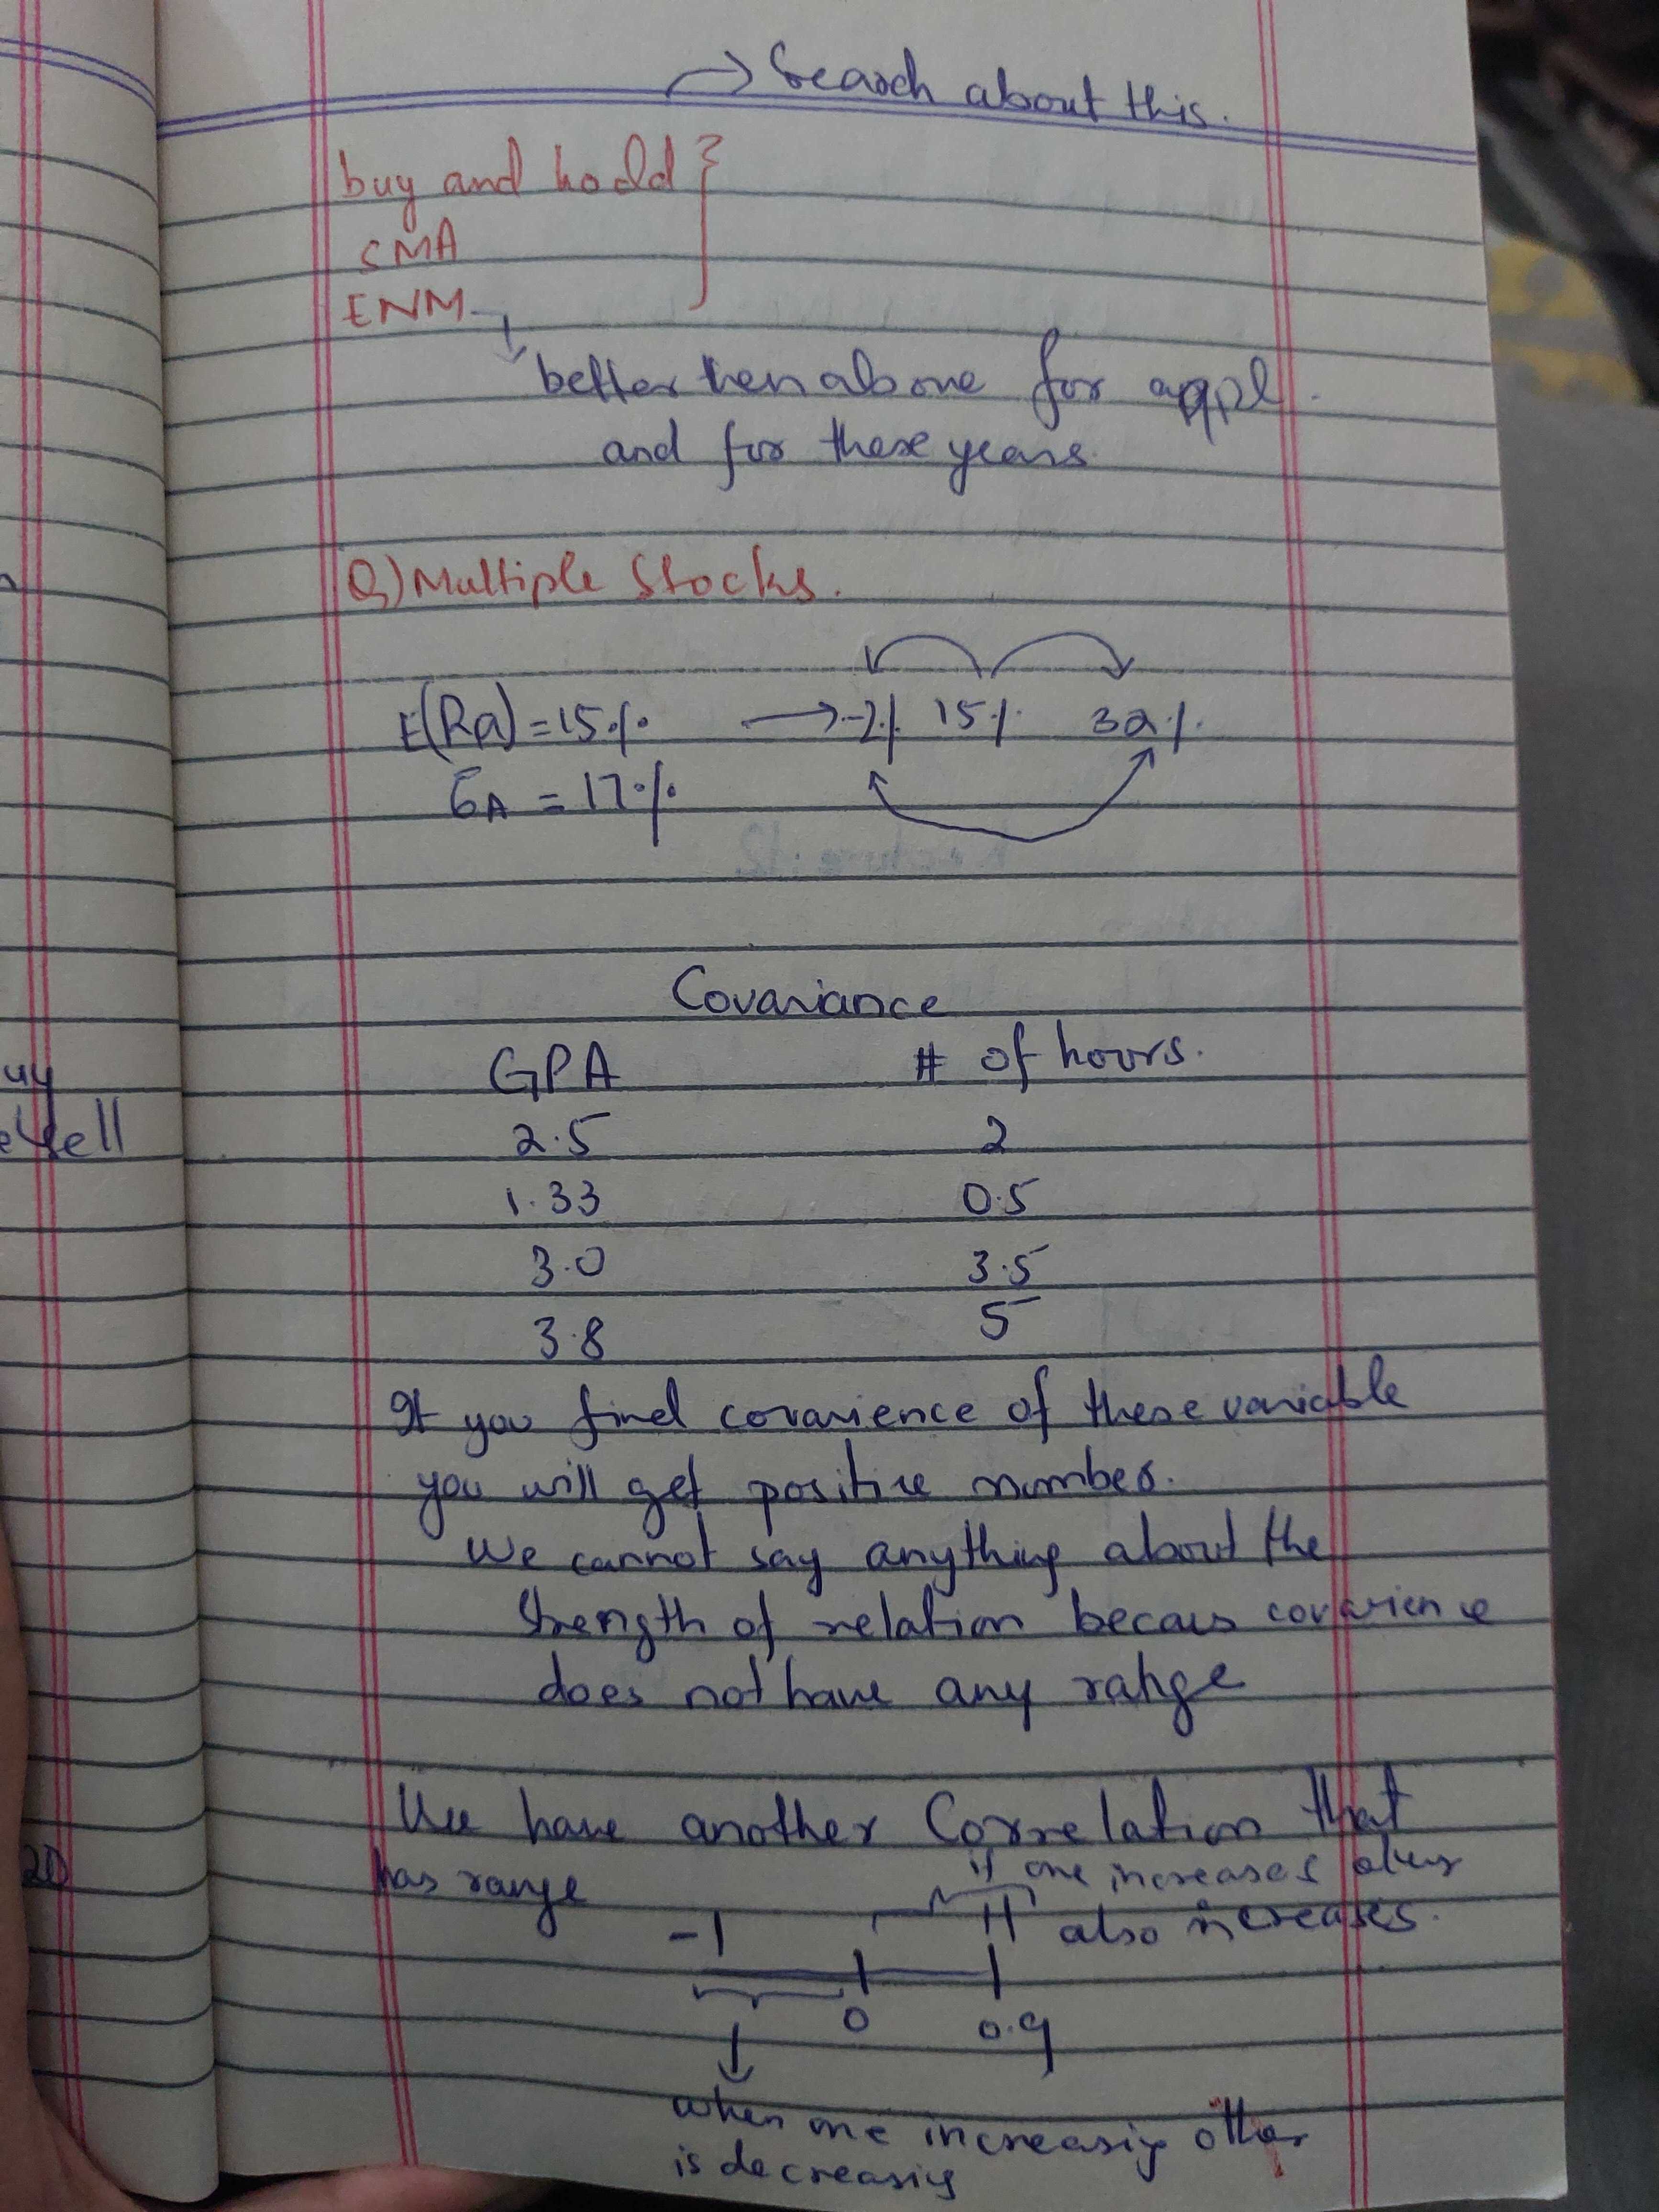 → Search about this.
buy and hodld }
SMA
ENM
better then above for appl.
and for these years.
Q) Multiple Stocks.
E(Ra) = 15% → -2% 15% 32%
σA = 17%
Covariance
GPA # of hours.
2.5 2
1.33 0.5
3.0 3.5
3.8 5
If you find covarience of these variable
you will get positive number.
We cannot say anything about the
strength of relation becaus covarience
does not have any range
We have another Correlation that
has range if one increases other
-1 +1 also increases.
0 0.9
when one increasing other
is decreasing
uy
sell
20